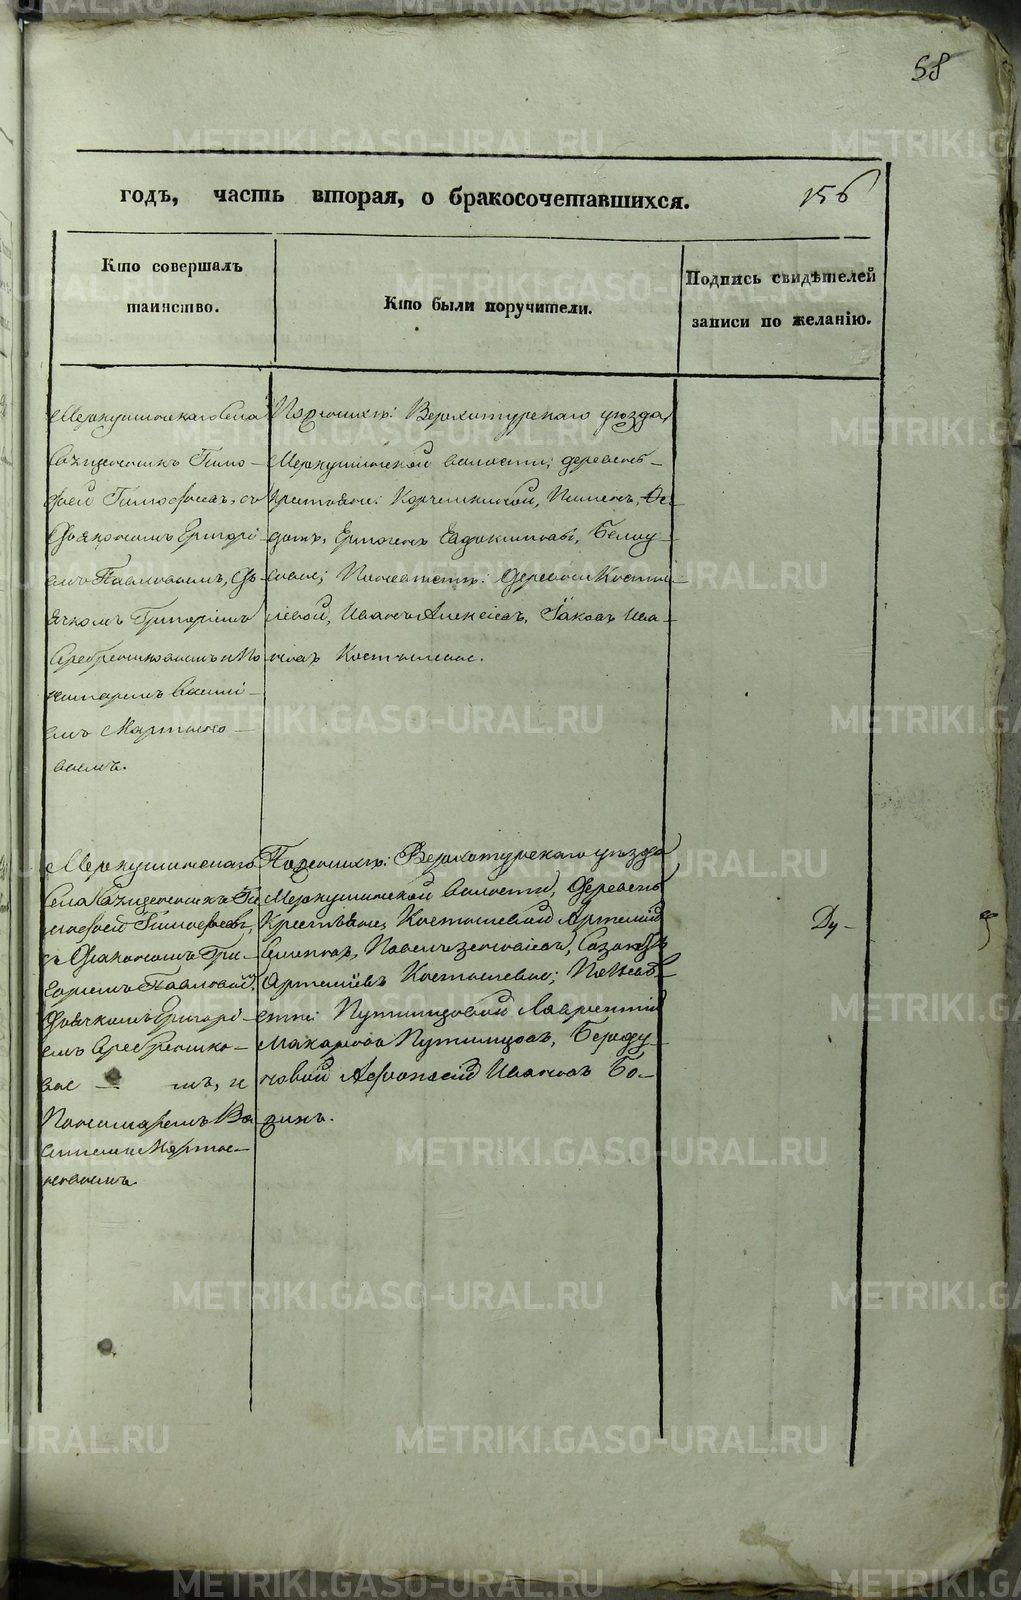 58
годъ, часть вторая, о бракосочетавшихся. 156
Кто совершалъ
таинство.
Кто были поручители.
Подпись свидѣтелей
записи по желанію.
Меркушинскаго Села
Священникъ Тимо-
фей Тимофеевъ, съ
Дьякономъ Григорі-
емъ Павловымъ, Дь-
ячкомъ Григоріемъ
Серебренниковымъ и По
номаремъ Васили-
емъ Мартыно-
вымъ.
По женихѣ: Верхотурскаго уѣзда,
Меркушинской волости, деревень
крестьяне: Корчемкиной, Пимен, Ѳе-
дотъ, Евдокимовы,
По невѣстѣ: Деревни Косты-
левой, Иванъ Алексѣевъ, Яковъ Ива-
новъ Костылевы.
Меркушинскаго
Села Священникъ Ти
мофей Тимофеевъ,
съ Дьякономъ Гри-
горіемъ Павловымъ,
Дьячкомъ Григорі-
емъ Серебренико-
вы - мъ, и
Пономаремъ Ва
силіемъ Марты-
новымъ.
По женихѣ: Верхотурскаго уѣзда
Меркушинской волости, Деревень
Крестьяне, Костылевой Артемій
Артемьевъ Костылевы; По невѣ-
стѣ: Путимцовой Лаврентій
Макаровъ Путимцовъ, Береду-
новой Афонасій Ивановъ Бо-
зинъ.
Ду-